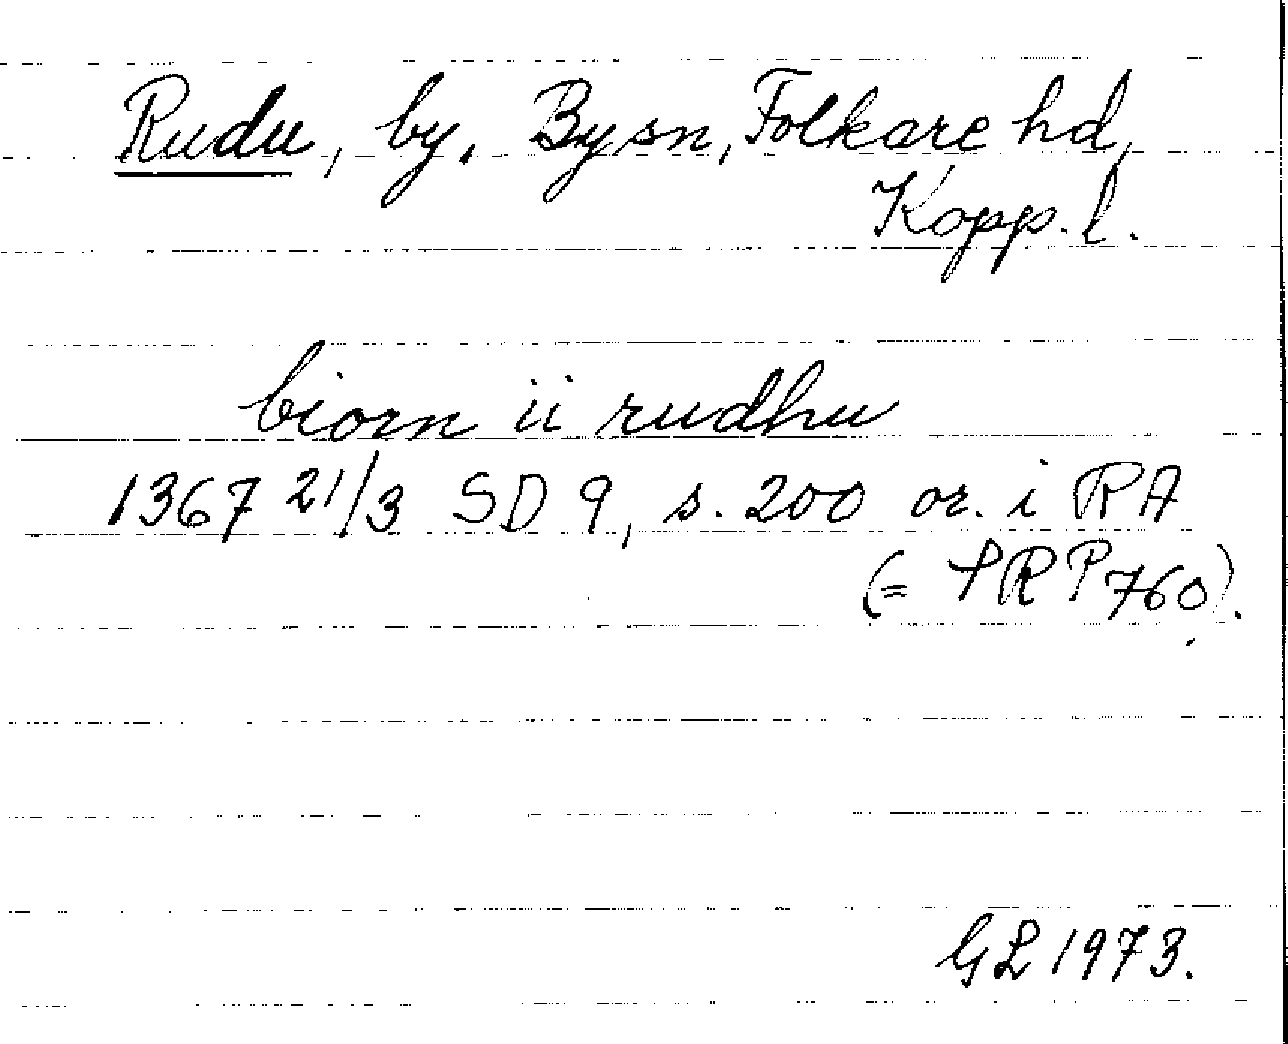 Rudu, by, By sn, Folkare hd,
Kopp. l.
biorn ii rudhu
1367 21/3 SD 9, s. 200 or. i RA
(= †RP 760).
GL 1973.